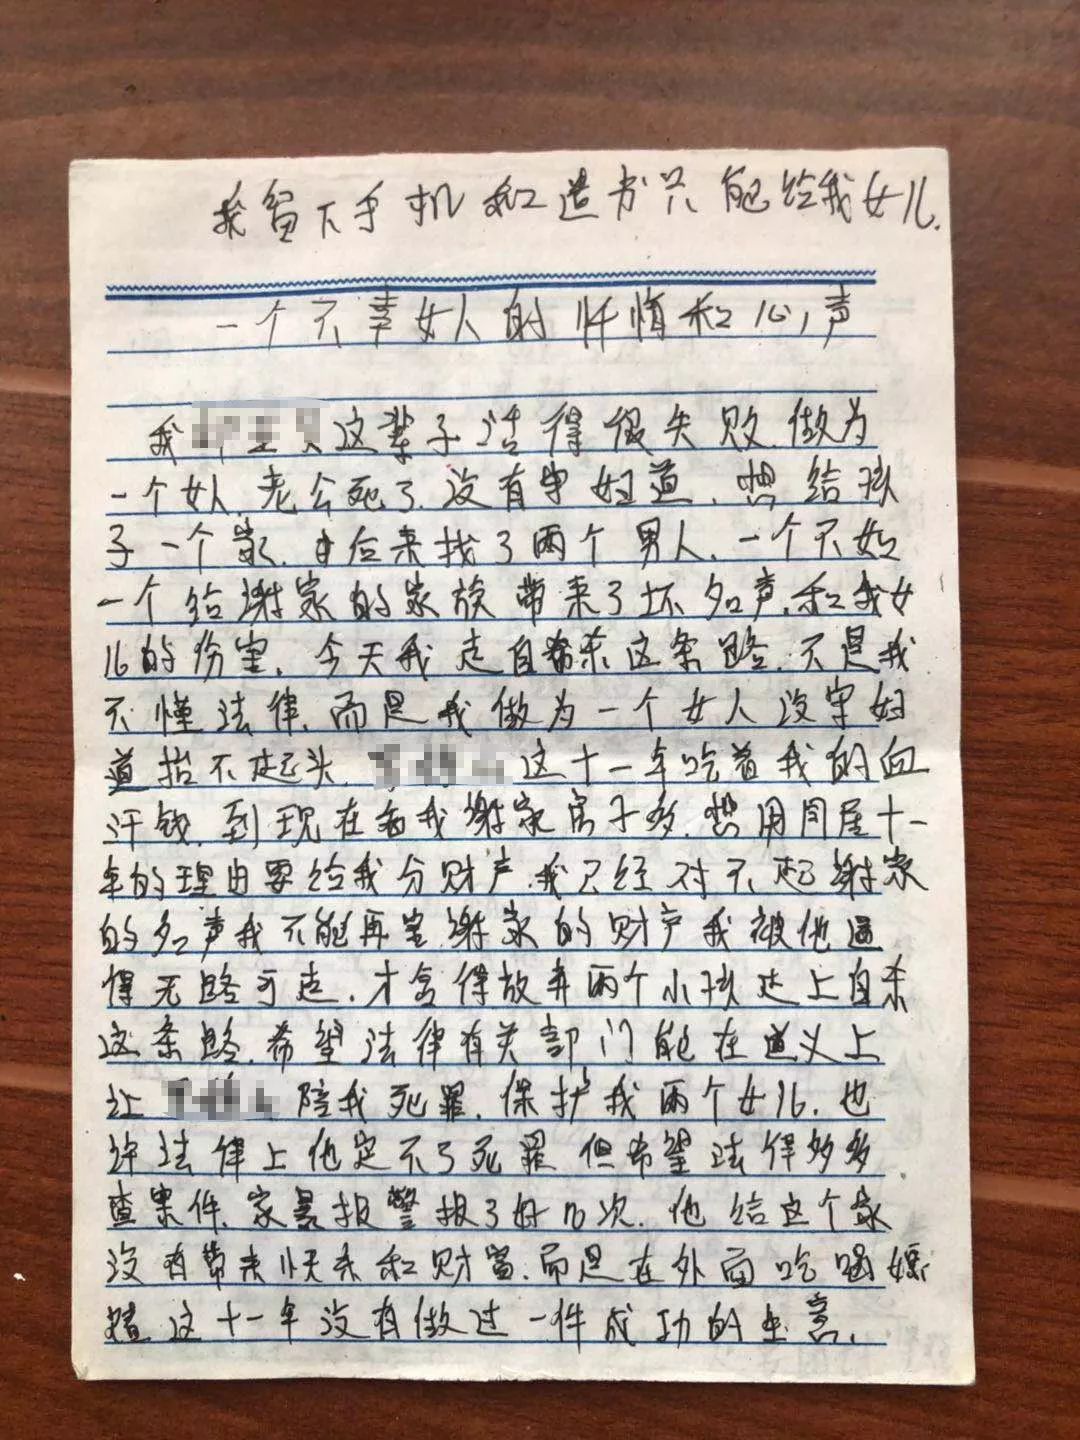 我留下手机和遗书只能给我女儿.
一个不幸女人的忏悔和心声
我 这辈子活得很失败.做为
一个女人.老公死了.没有守妇道.想给孩
子一个家.后来找了两个男人.一个不如
一个给谢家的家族带来了坏名声.和我女
儿的伤害.今天我走自杀这条路.不是我
不懂法律.而是我做为一个女人没守妇
道抬不起头. 这十一年吃着我的血
汗钱.到现在 我谢家房子多.想用同居十一
年的理由要给我分财产.我已经对不起谢家
的名声我不能再害谢家的财产我被他逼
得无路可走.才舍得放弃两个小孩走上自杀
这条路.希望法律有关部门能在道义上
让 陪我死罪.保护我两个女儿.也
许法律上他定不了死罪但希望法律多多
查案件.家暴报警报了好几次.他给这个家
没有带来快乐和财富.而是在外面吃喝嫖
赌这十一年没有做过一件成功的生意.